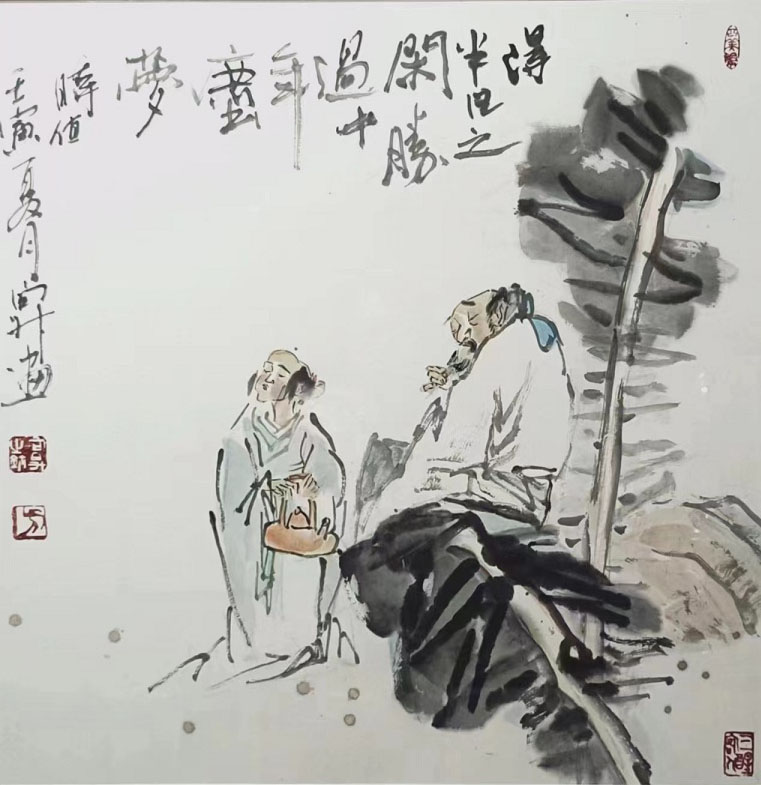 得
半日之
閑勝
過十
年
塵
夢
時值
壬寅夏月
画